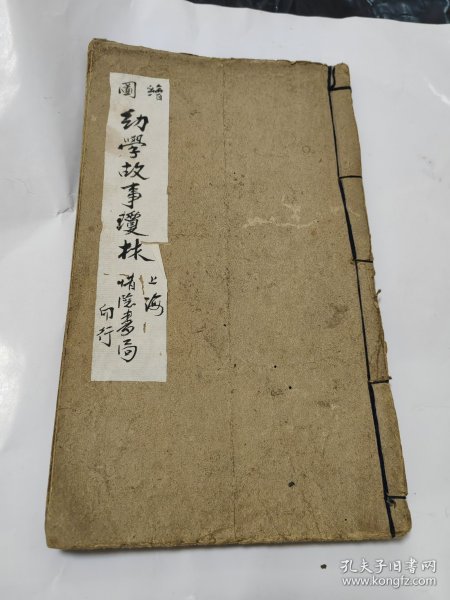 繪圖
幼學故事瓊林
上海
惜陰書局
印行
孔夫子旧书网
www.kongfz.com